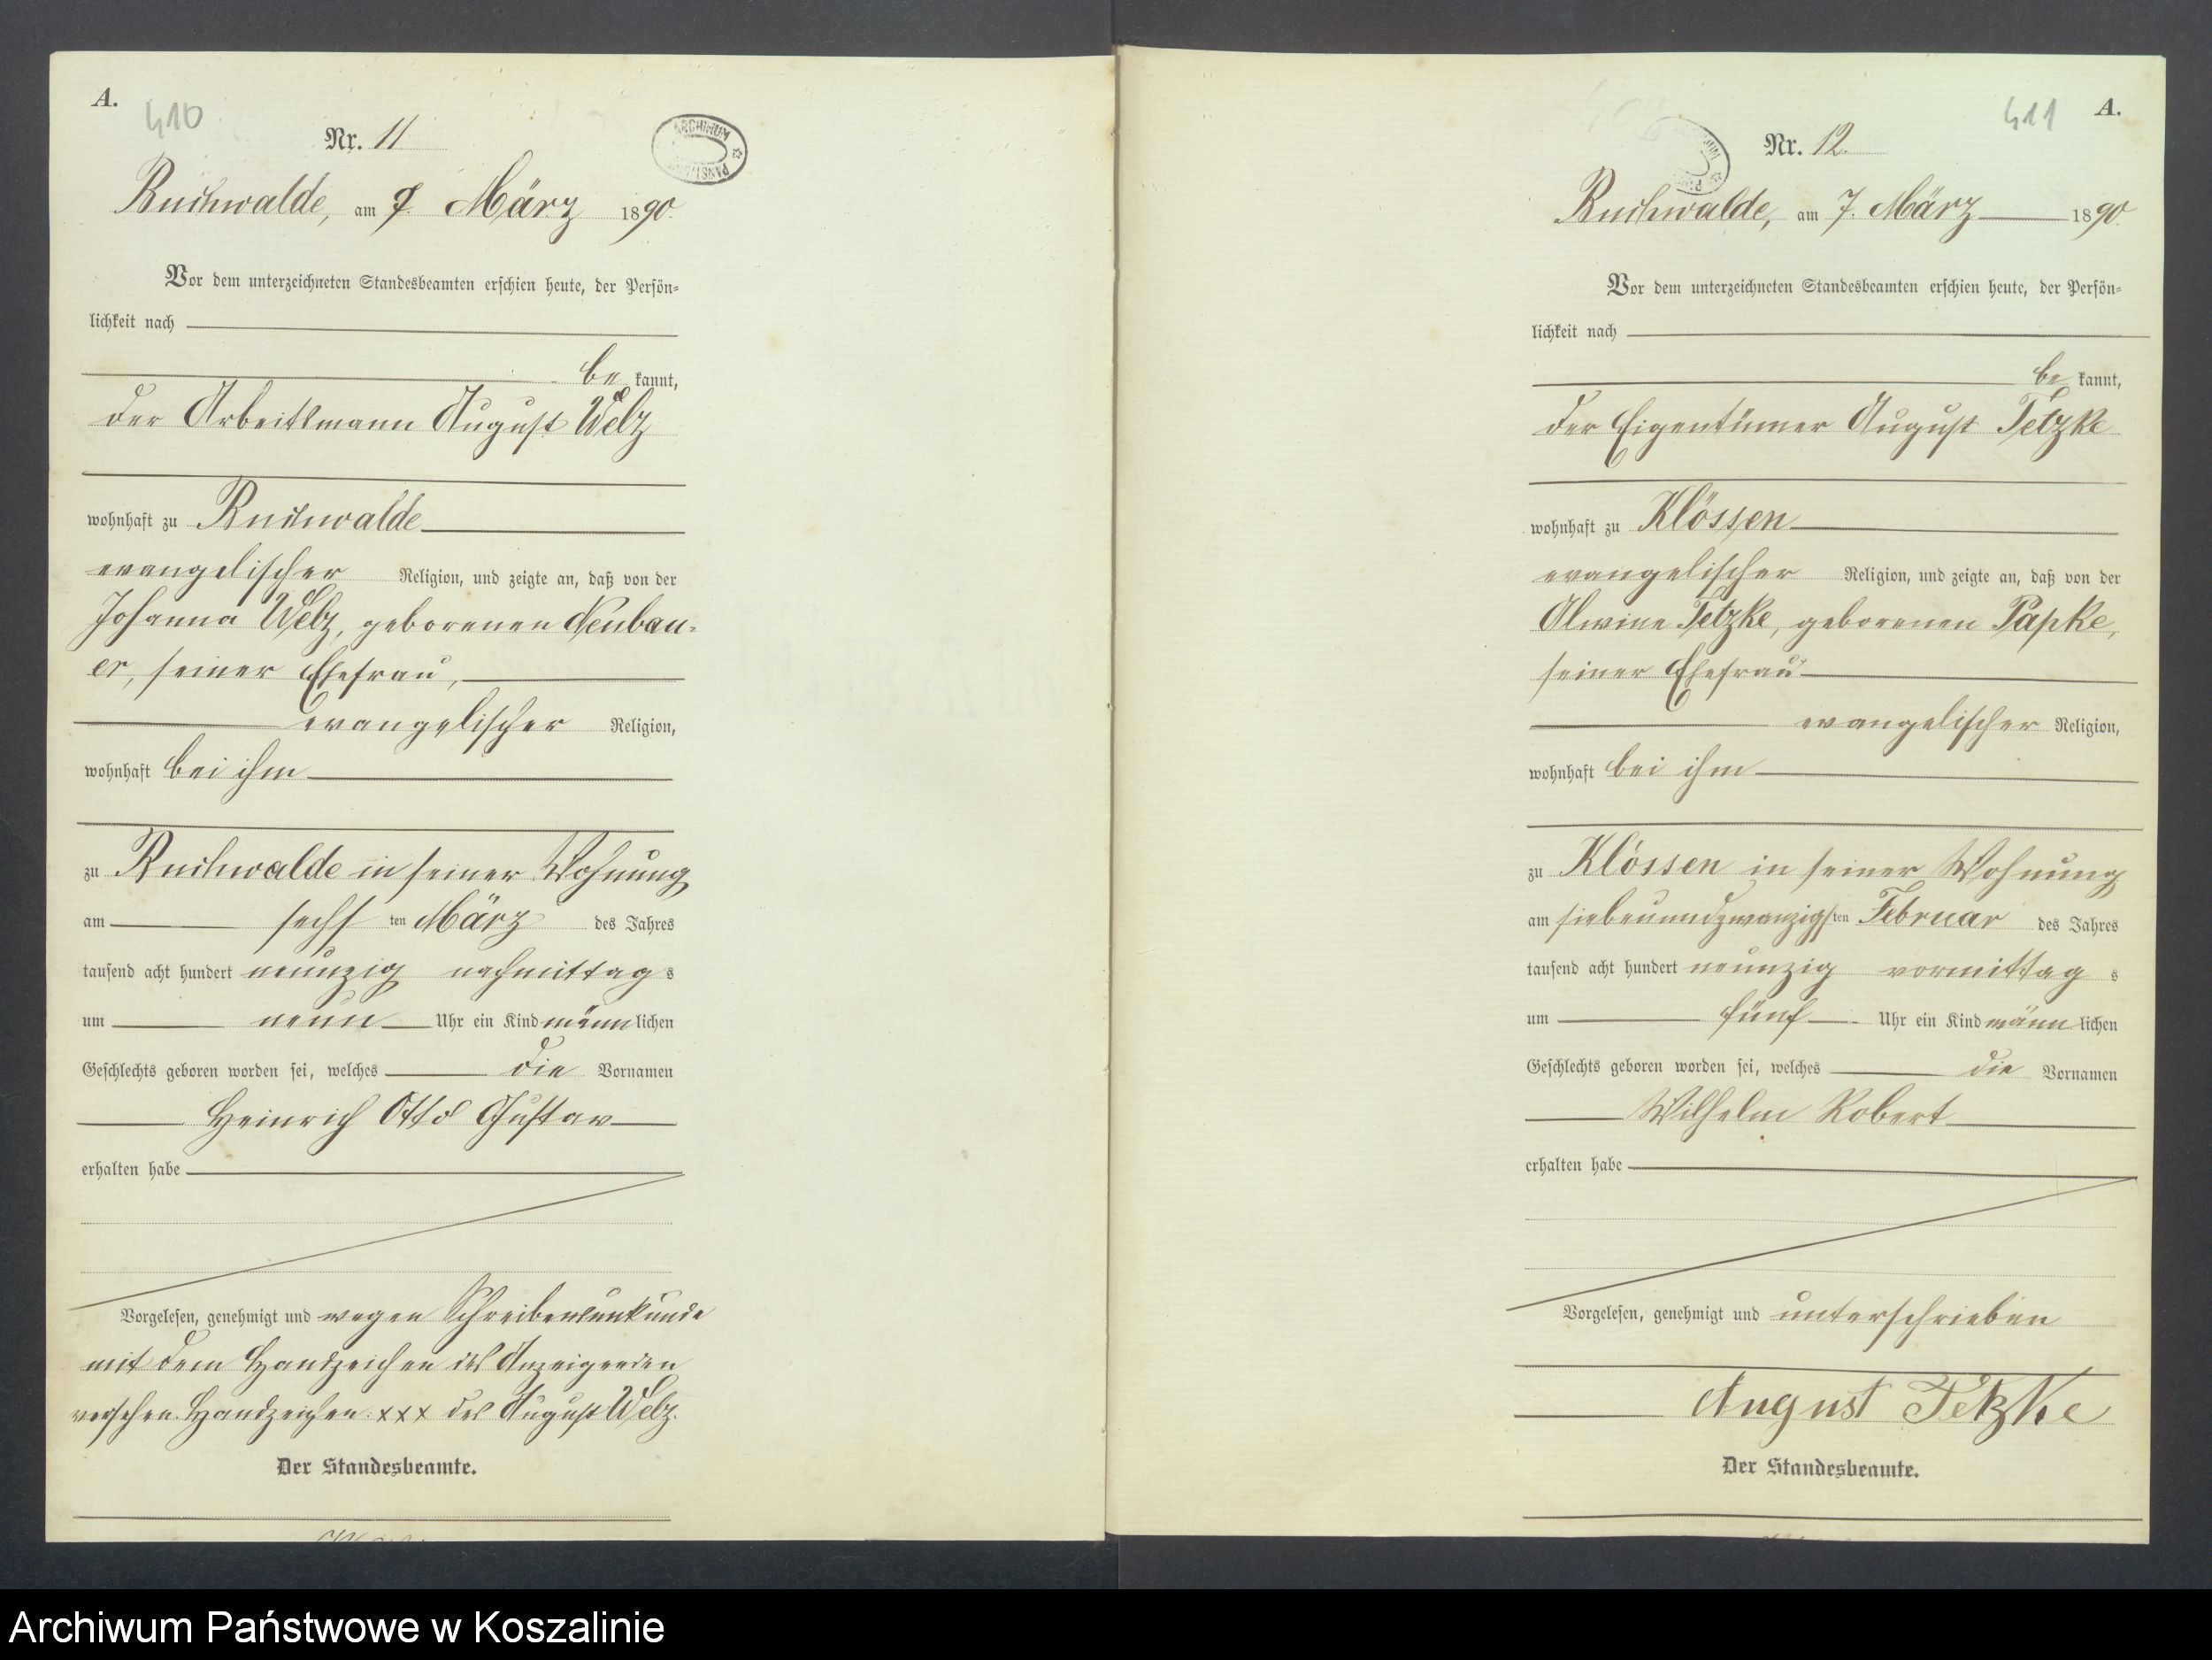 A.
410
Nr. 11
ARCHIWUM
Buchwalde, am 7. März 1890.
Vor dem unterzeichneten Standesbeamten erschien heute, der Persön=
lichkeit nach
be kannt,
der Arbeitsmann August Welz
wohnhaft zu Buchwalde
evangelischer Religion, und zeigte an, daß von der
Johanna Welz, geborenen Neubau-
er, seiner Ehefrau,
evangelischer Religion,
wohnhaft bei ihm
zu Buchwalde in seiner Wohnung
am sechs ten März des Jahres
tausend acht hundert neunzig nachmittag s
um neun Uhr ein Kind männ lichen
Geschlechts geboren worden sei, welches die Vornamen
Heinrich Otto Gustav
erhalten habe
Vorgelesen, genehmigt und wegen Schreibensunkunde
mit dem Handzeichen des Anzeigenden
versehen. Handzeichen: xxx des August Welz.
Der Standesbeamte.
411 A.
Nr. 12.
Buchwalde, am 7. März 1890.
Vor dem unterzeichneten Standesbeamten erschien heute, der Persön=
lichkeit nach
be kannt,
der Eigentümer August Tetzke
wohnhaft zu Klössen
evangelischer Religion, und zeigte an, daß von der
Alwine Tetzke, geborenen Papke,
seiner Ehefrau
evangelischer Religion,
wohnhaft bei ihm
zu Klössen in seiner Wohnung
am siebenundzwanzigs ten Februar des Jahres
tausend acht hundert neunzig vormittag s
um fünf Uhr ein Kind männ lichen
Geschlechts geboren worden sei, welches die Vornamen
Wilhelm Robert
erhalten habe
Vorgelesen, genehmigt und unterschrieben
August Tetzke
Der Standesbeamte.
Archiwum Państwowe w Koszalinie